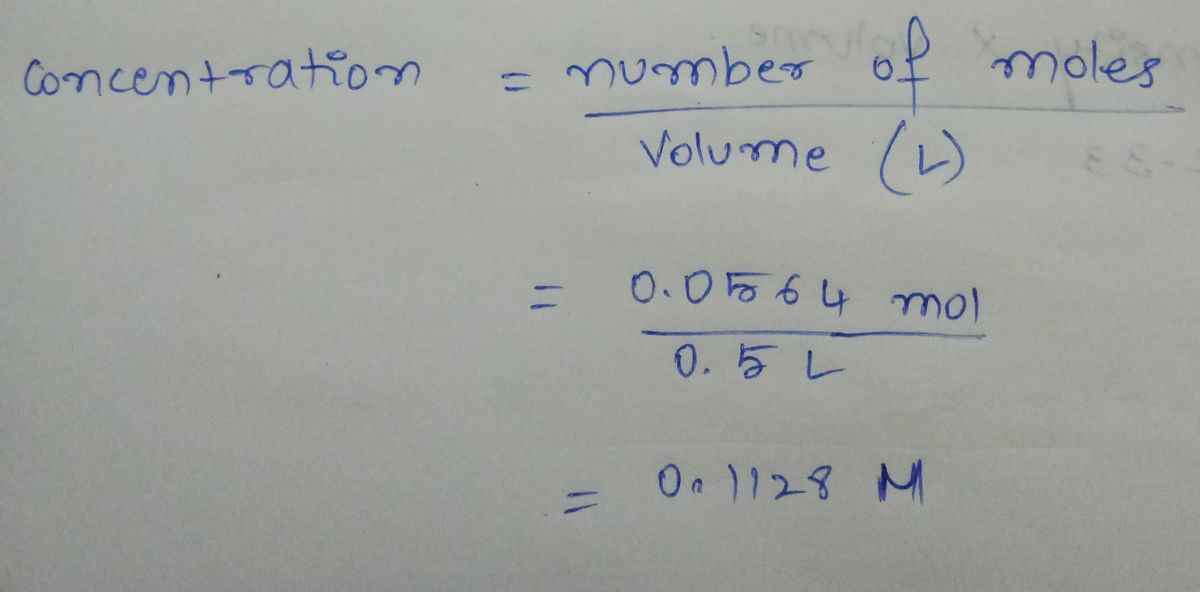 Concentration = number of moles
Volume (L)
= 0.0564 mol
0.5 L
= 0.1128 M